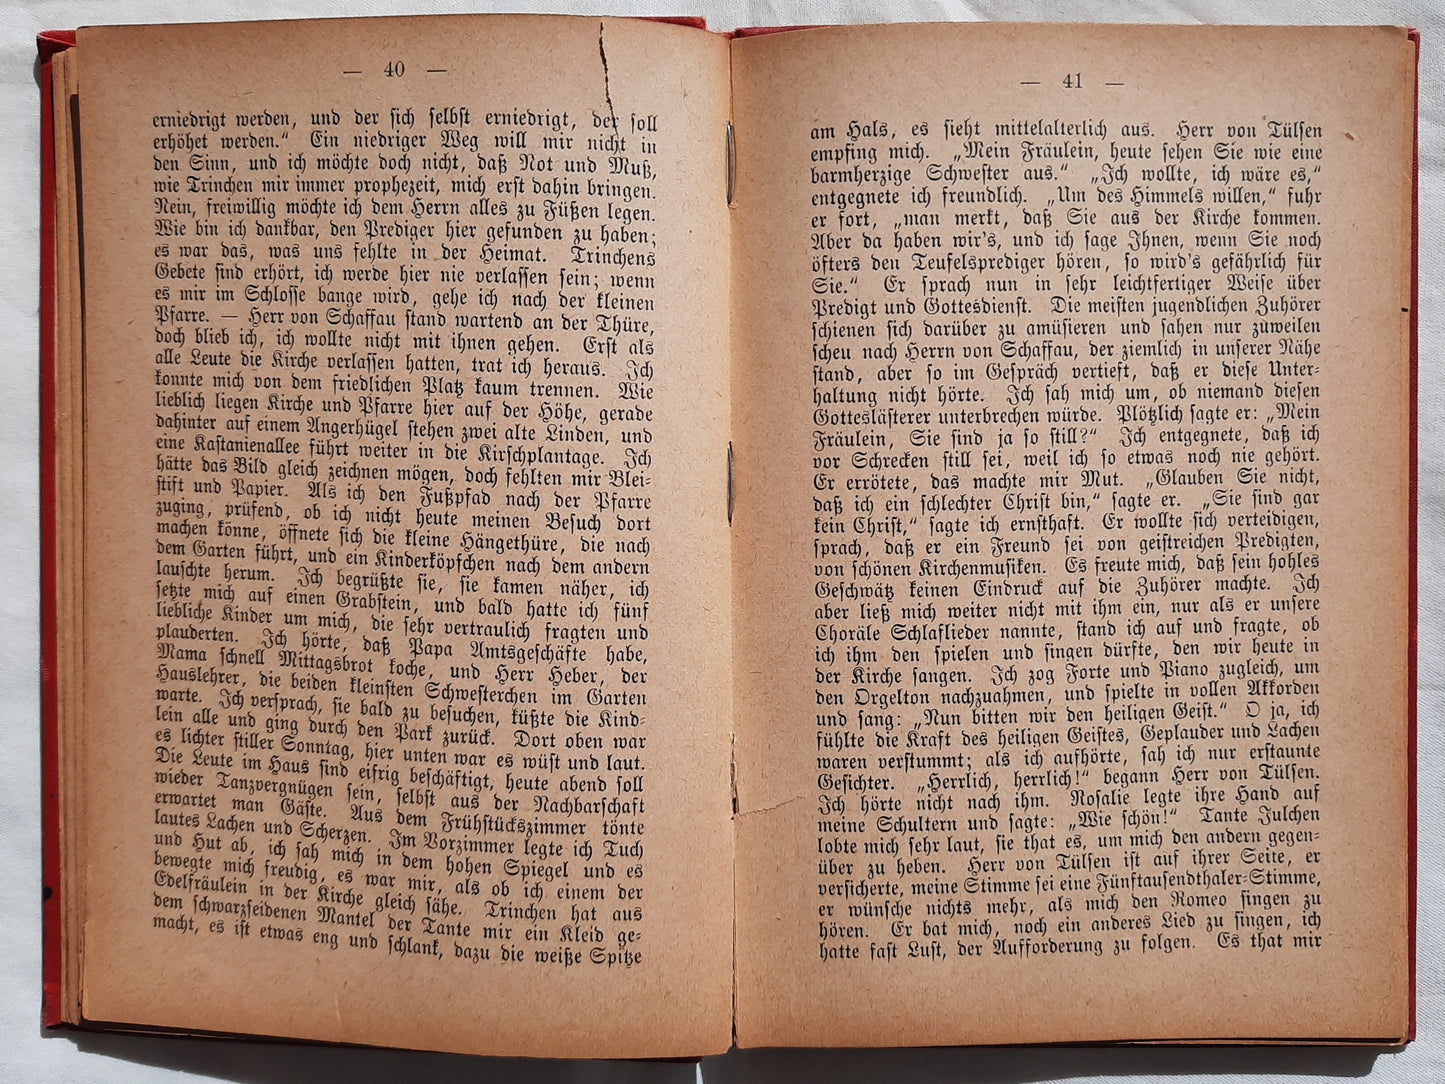 — 40 —
erniedrigt werden, und der sich selbst erniedrigt, der soll
erhöhet werden.“ Ein niedriger Weg will mir nicht in
den Sinn, und ich möchte doch nicht, daß Not und Muß,
wie Trinchen mir immer prophezeit, mich erst dahin bringen.
Nein, freiwillig möchte ich dem Herrn alles zu Füßen legen.
Wie bin ich dankbar, den Prediger hier gefunden zu haben;
es war das, was uns fehlte in der Heimat. Trinchens
Gebete sind erhört, ich werde hier nie verlassen sein; wenn
es mir im Schlosse bange wird, gehe ich nach der kleinen
Pfarre. — Herr von Schaffau stand wartend an der Thüre,
doch blieb ich, ich wollte nicht mit ihnen gehen. Erst als
alle Leute die Kirche verlassen hatten, trat ich heraus. Ich
konnte mich von dem friedlichen Platz kaum trennen. Wie
lieblich liegen Kirche und Pfarre hier auf der Höhe, gerade
dahinter auf einem Angerhügel stehen zwei alte Linden, und
eine Kastanienallee führt weiter in die Kirschplantage. Ich
hätte das Bild gleich zeichnen mögen, doch fehlten mir Blei-
stift und Papier. Als ich den Fußpfad nach der Pfarre
zuging, prüfend, ob ich nicht heute meinen Besuch dort
machen könne, öffnete sich die kleine Hängethüre, die nach
dem Garten führt, und ein Kinderköpfchen nach dem andern
lauschte herum. Ich begrüßte sie, sie kamen näher, ich
setzte mich auf einen Grabstein, und bald hatte ich fünf
liebliche Kinder um mich, die sehr vertraulich fragten und
plauderten. Ich hörte, daß Papa Amtsgeschäfte habe,
Mama schnell Mittagsbrot koche, und Herr Heber, der
Hauslehrer, die beiden kleinsten Schwesterchen im Garten
warte. Ich versprach, sie bald zu besuchen, küßte die Kind-
lein alle und ging durch den Park zurück. Dort oben war
es lichter stiller Sonntag, hier unten war es wüst und laut.
Die Leute im Haus sind eifrig beschäftigt, heute abend soll
wieder Tanzvergnügen sein, selbst aus der Nachbarschaft
erwartet man Gäste. Aus dem Frühstückszimmer tönte
lautes Lachen und Scherzen. Im Vorzimmer legte ich Tuch
und Hut ab, ich sah mich in dem hohen Spiegel und es
bewegte mich freudig, es war mir, als ob ich einem der
Edelfräulein in der Kirche gleich sähe. Trinchen hat aus
dem schwarzseidenen Mantel der Tante mir ein Kleid ge-
macht, es ist etwas eng und schlank, dazu die weiße Spitze
— 41 —
am Hals, es sieht mittelalterlich aus. Herr von Tülsen
empfing mich. „Mein Fräulein, heute sehen Sie wie eine
barmherzige Schwester aus.“ „Ich wollte, ich wäre es,“
entgegnete ich freundlich. „Um des Himmels willen,“ fuhr
er fort, „man merkt, daß Sie aus der Kirche kommen.
Aber da haben wir's, und ich sage Ihnen, wenn Sie noch
öfters den Teufelsprediger hören, so wird's gefährlich für
Sie.“ Er sprach nun in sehr leichtfertiger Weise über
Predigt und Gottesdienst. Die meisten jugendlichen Zuhörer
schienen sich darüber zu amüsieren und sahen nur zuweilen
scheu nach Herrn von Schaffau, der ziemlich in unserer Nähe
stand, aber so im Gespräch vertieft, daß er diese Unter-
haltung nicht hörte. Ich sah mich um, ob niemand diesen
Gotteslästerer unterbrechen würde. Plötzlich sagte er: „Mein
Fräulein, Sie sind ja so still?“ Ich entgegnete, daß ich
vor Schrecken still sei, weil ich so etwas noch nie gehört.
Er errötete, das machte mir Mut. „Glauben Sie nicht,
daß ich ein schlechter Christ bin,“ sagte er. „Sie sind gar
kein Christ,“ sagte ich ernsthaft. Er wollte sich verteidigen,
sprach, daß er ein Freund sei von geistreichen Predigten,
von schönen Kirchenmusiken. Es freute mich, daß sein hohles
Geschwätz keinen Eindruck auf die Zuhörer machte. Ich
aber ließ mich weiter nicht mit ihm ein, nur als er unsere
Choräle Schlaflieder nannte, stand ich auf und fragte, ob
ich ihm den spielen und singen dürfte, den wir heute in
der Kirche sangen. Ich zog Forte und Piano zugleich, um
den Orgelton nachzuahmen, und spielte in vollen Akkorden
und sang: „Nun bitten wir den heiligen Geist.“ O ja, ich
fühlte die Kraft des heiligen Geistes, Geplauder und Lachen
waren verstummt; als ich aufhörte, sah ich nur erstaunte
Gesichter. „Herrlich, herrlich!“ begann Herr von Tülsen.
Ich hörte nicht nach ihm. Rosalie legte ihre Hand auf
meine Schultern und sagte: „Wie schön!“ Tante Julchen
lobte mich sehr laut, sie that es, um mich den andern gegen-
über zu heben. Herr von Tülsen ist auf ihrer Seite, er
versicherte, meine Stimme sei eine Fünftausendthaler-Stimme,
er wünsche nichts mehr, als mich den Romeo singen zu
hören. Er bat mich, noch ein anderes Lied zu singen, ich
hatte fast Lust, der Aufforderung zu folgen. Es that mir